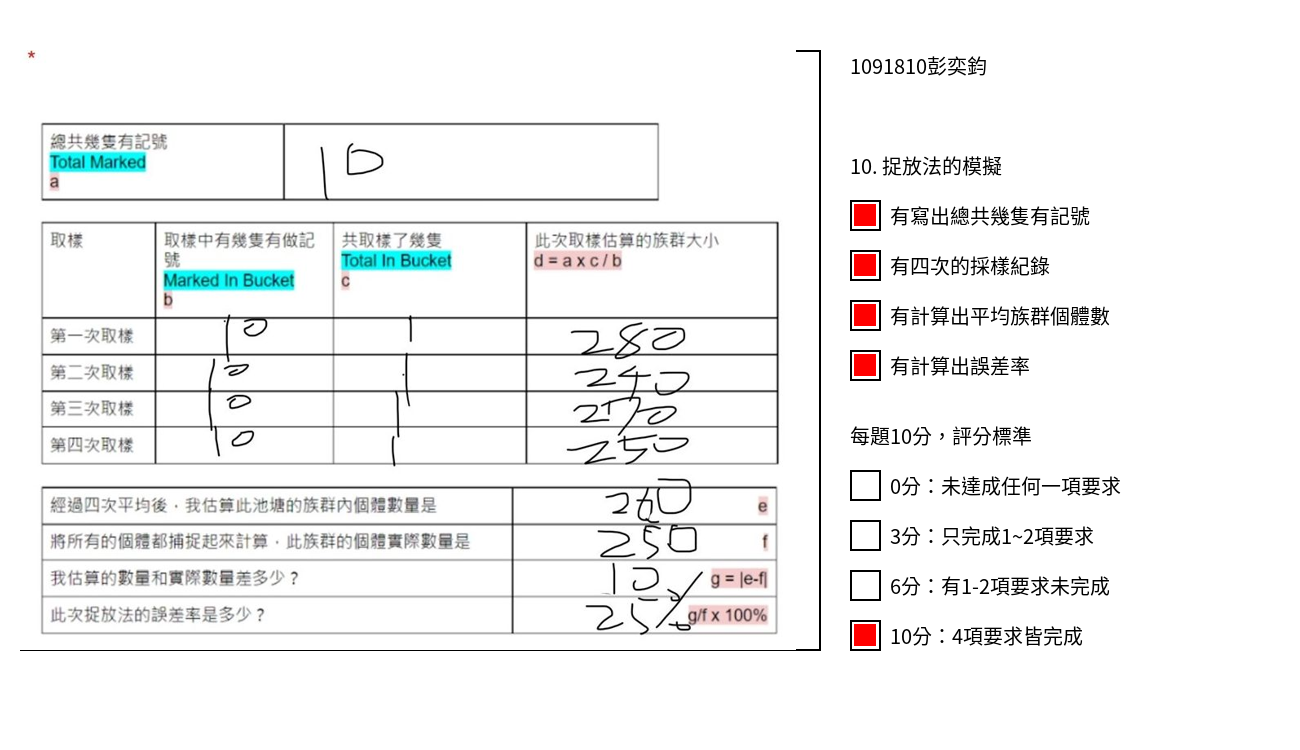 *
總共幾隻有記號
Total Marked
a
10
取樣
取樣中有幾隻有做記
號
Marked In Bucket
b
共取樣了幾隻
Total In Bucket
c
此次取樣估算的族群大小
d = a x c / b
第一次取樣 10 1 280
第二次取樣 10 1 240
第三次取樣 10 1 270
第四次取樣 10 1 250
經過四次平均後，我估算此池塘的族群內個體數量是 260 e
將所有的個體都捕捉起來計算，此族群的個體實際數量是 250 f
我估算的數量和實際數量差多少？ 10 g = |e-f|
此次捉放法的誤差率是多少？ 25% g/f x 100%
1091810彭奕鈞
10. 捉放法的模擬
有寫出總共幾隻有記號
有四次的採樣紀錄
有計算出平均族群個體數
有計算出誤差率
每題10分，評分標準
0分：未達成任何一項要求
3分：只完成1~2項要求
6分：有1-2項要求未完成
10分：4項要求皆完成